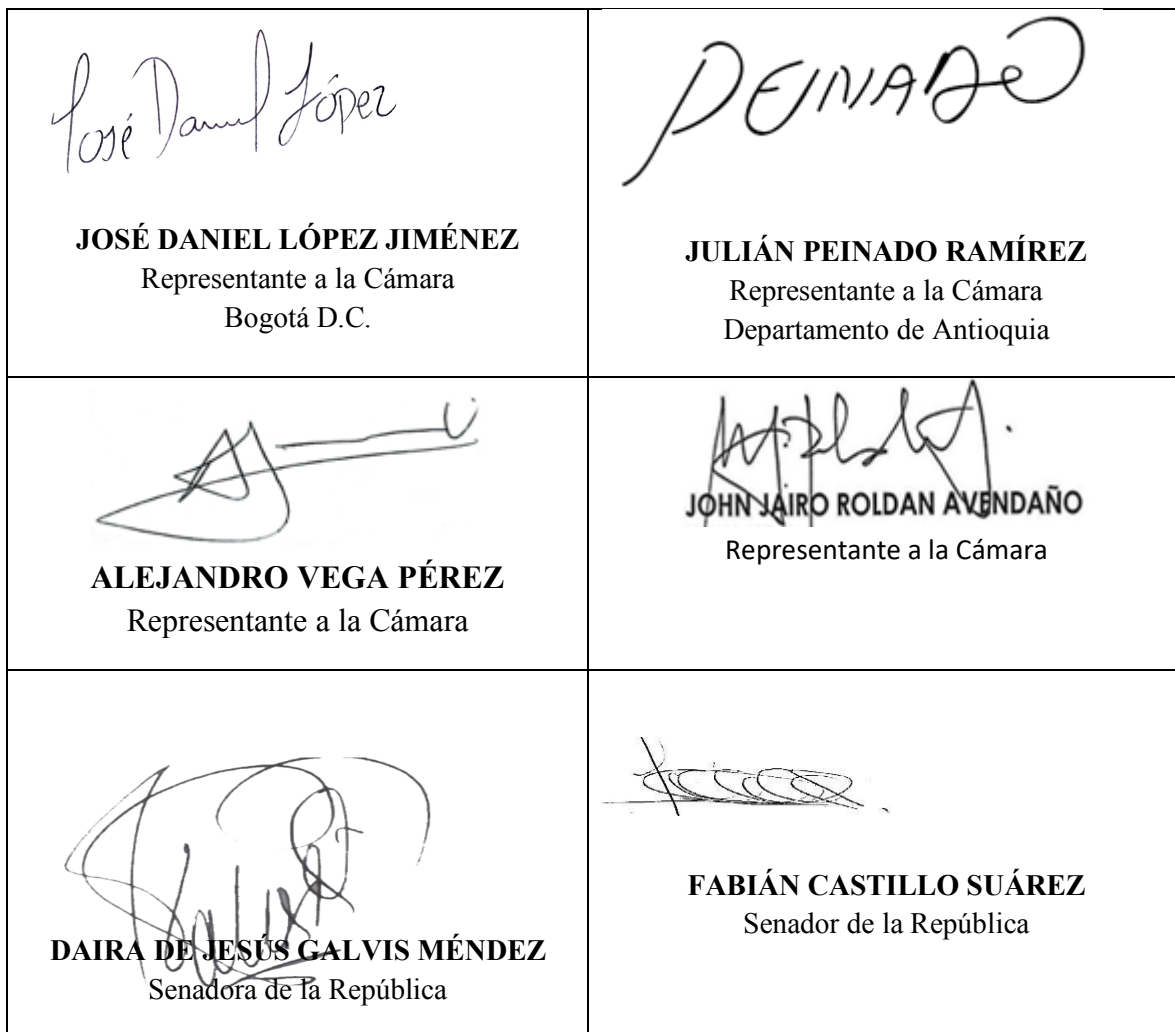 José Daniel López
JOSÉ DANIEL LÓPEZ JIMÉNEZ
Representante a la Cámara
Bogotá D.C.
PEINADO
JULIÁN PEINADO RAMÍREZ
Representante a la Cámara
Departamento de Antioquia
ALEJANDRO VEGA PÉREZ
Representante a la Cámara
JOHN JAIRO ROLDAN AVENDAÑO
Representante a la Cámara
DAIRA DE JESÚS GALVIS MÉNDEZ
Senadora de la República
FABIÁN CASTILLO SUÁREZ
Senador de la República